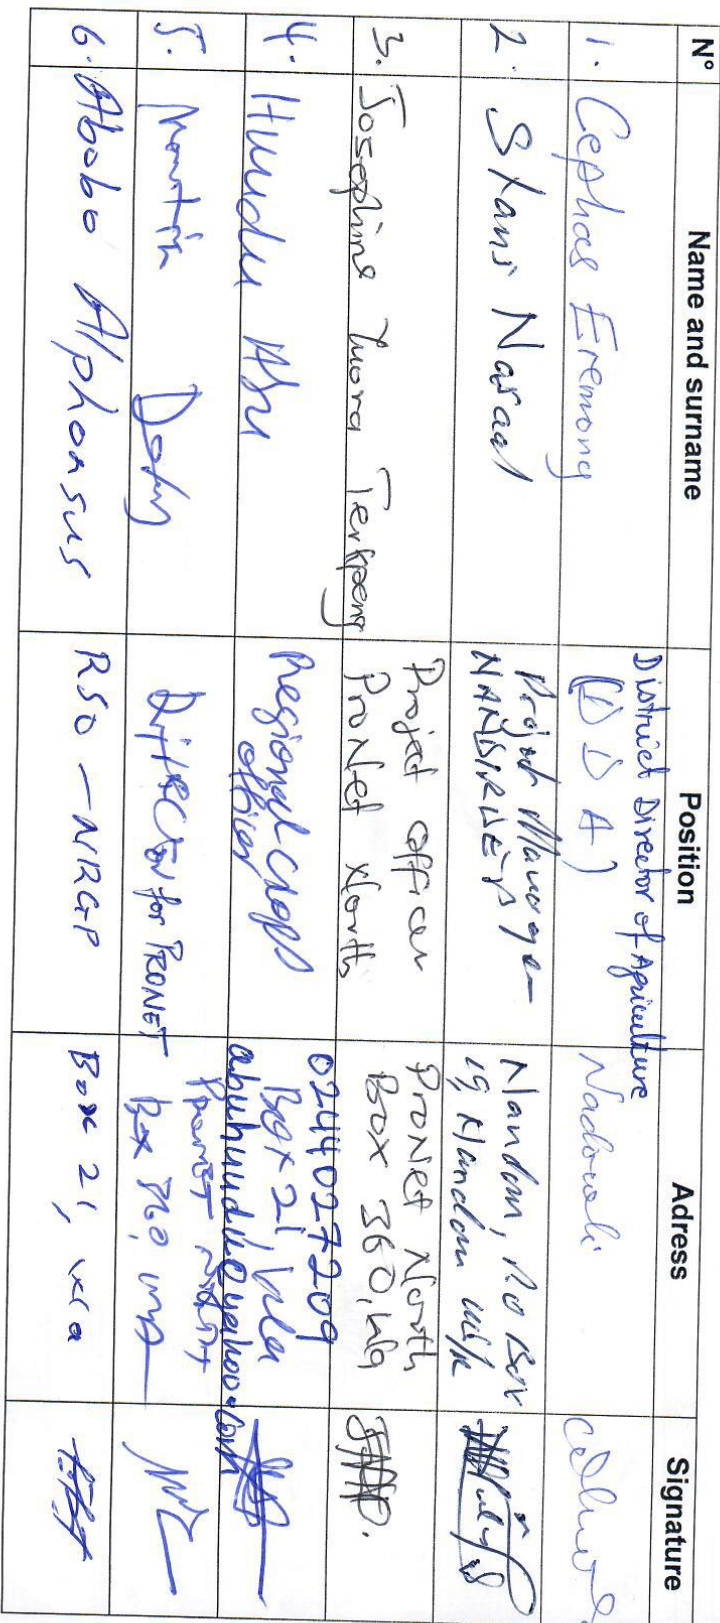 N° Name and surname Position Adress Signature
1. Cephas Eremong District Director of Agriculture Nadowli
(DDA)
2. Stans Nasaal Project Manager Nandom, P.O Box
NANDIRDEP 19, Nandom
3. Josephine Tuora Terkpeng Project officer ProNet North
ProNet North Box 360, Wa
4. Huudu Abu Regional Crops 0244027209
officer Box 21, Wa
abuhuudu@yahoo.com
5. Martin Dery Director for PRONET PRONET North
Box 360, Wa
6. Abobo Alphonsus RSO - NRGP Box 21, Wa